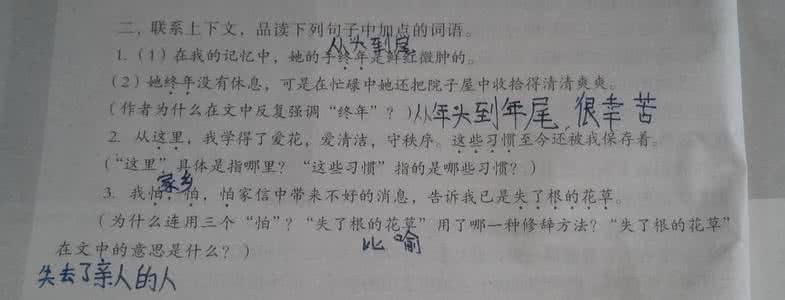 二、联系上下文，品读下列句子中加点的词语。
从头到尾
1.（1）在我的记忆中，她的手终年是鲜红微肿的。
（2）她终年没有休息，可是在忙碌中她还把院子屋中收拾得清清爽爽。
（作者为什么在文中反复强调“终年”？）从年头到年尾，很幸苦
2. 从这里，我学得了爱花，爱清洁，守秩序。这些习惯至今还被我保存着。
（“这里”具体是指哪里？“这些习惯”指的是哪些习惯？）
家乡
3. 我怕，怕，怕家信中带来不好的消息，告诉我已是失了根的花草。
（为什么连用三个“怕”？“失了根的花草”用了哪一种修辞方法？“失了根的花草”
比喻
在文中的意思是什么？）
失去了亲人的人